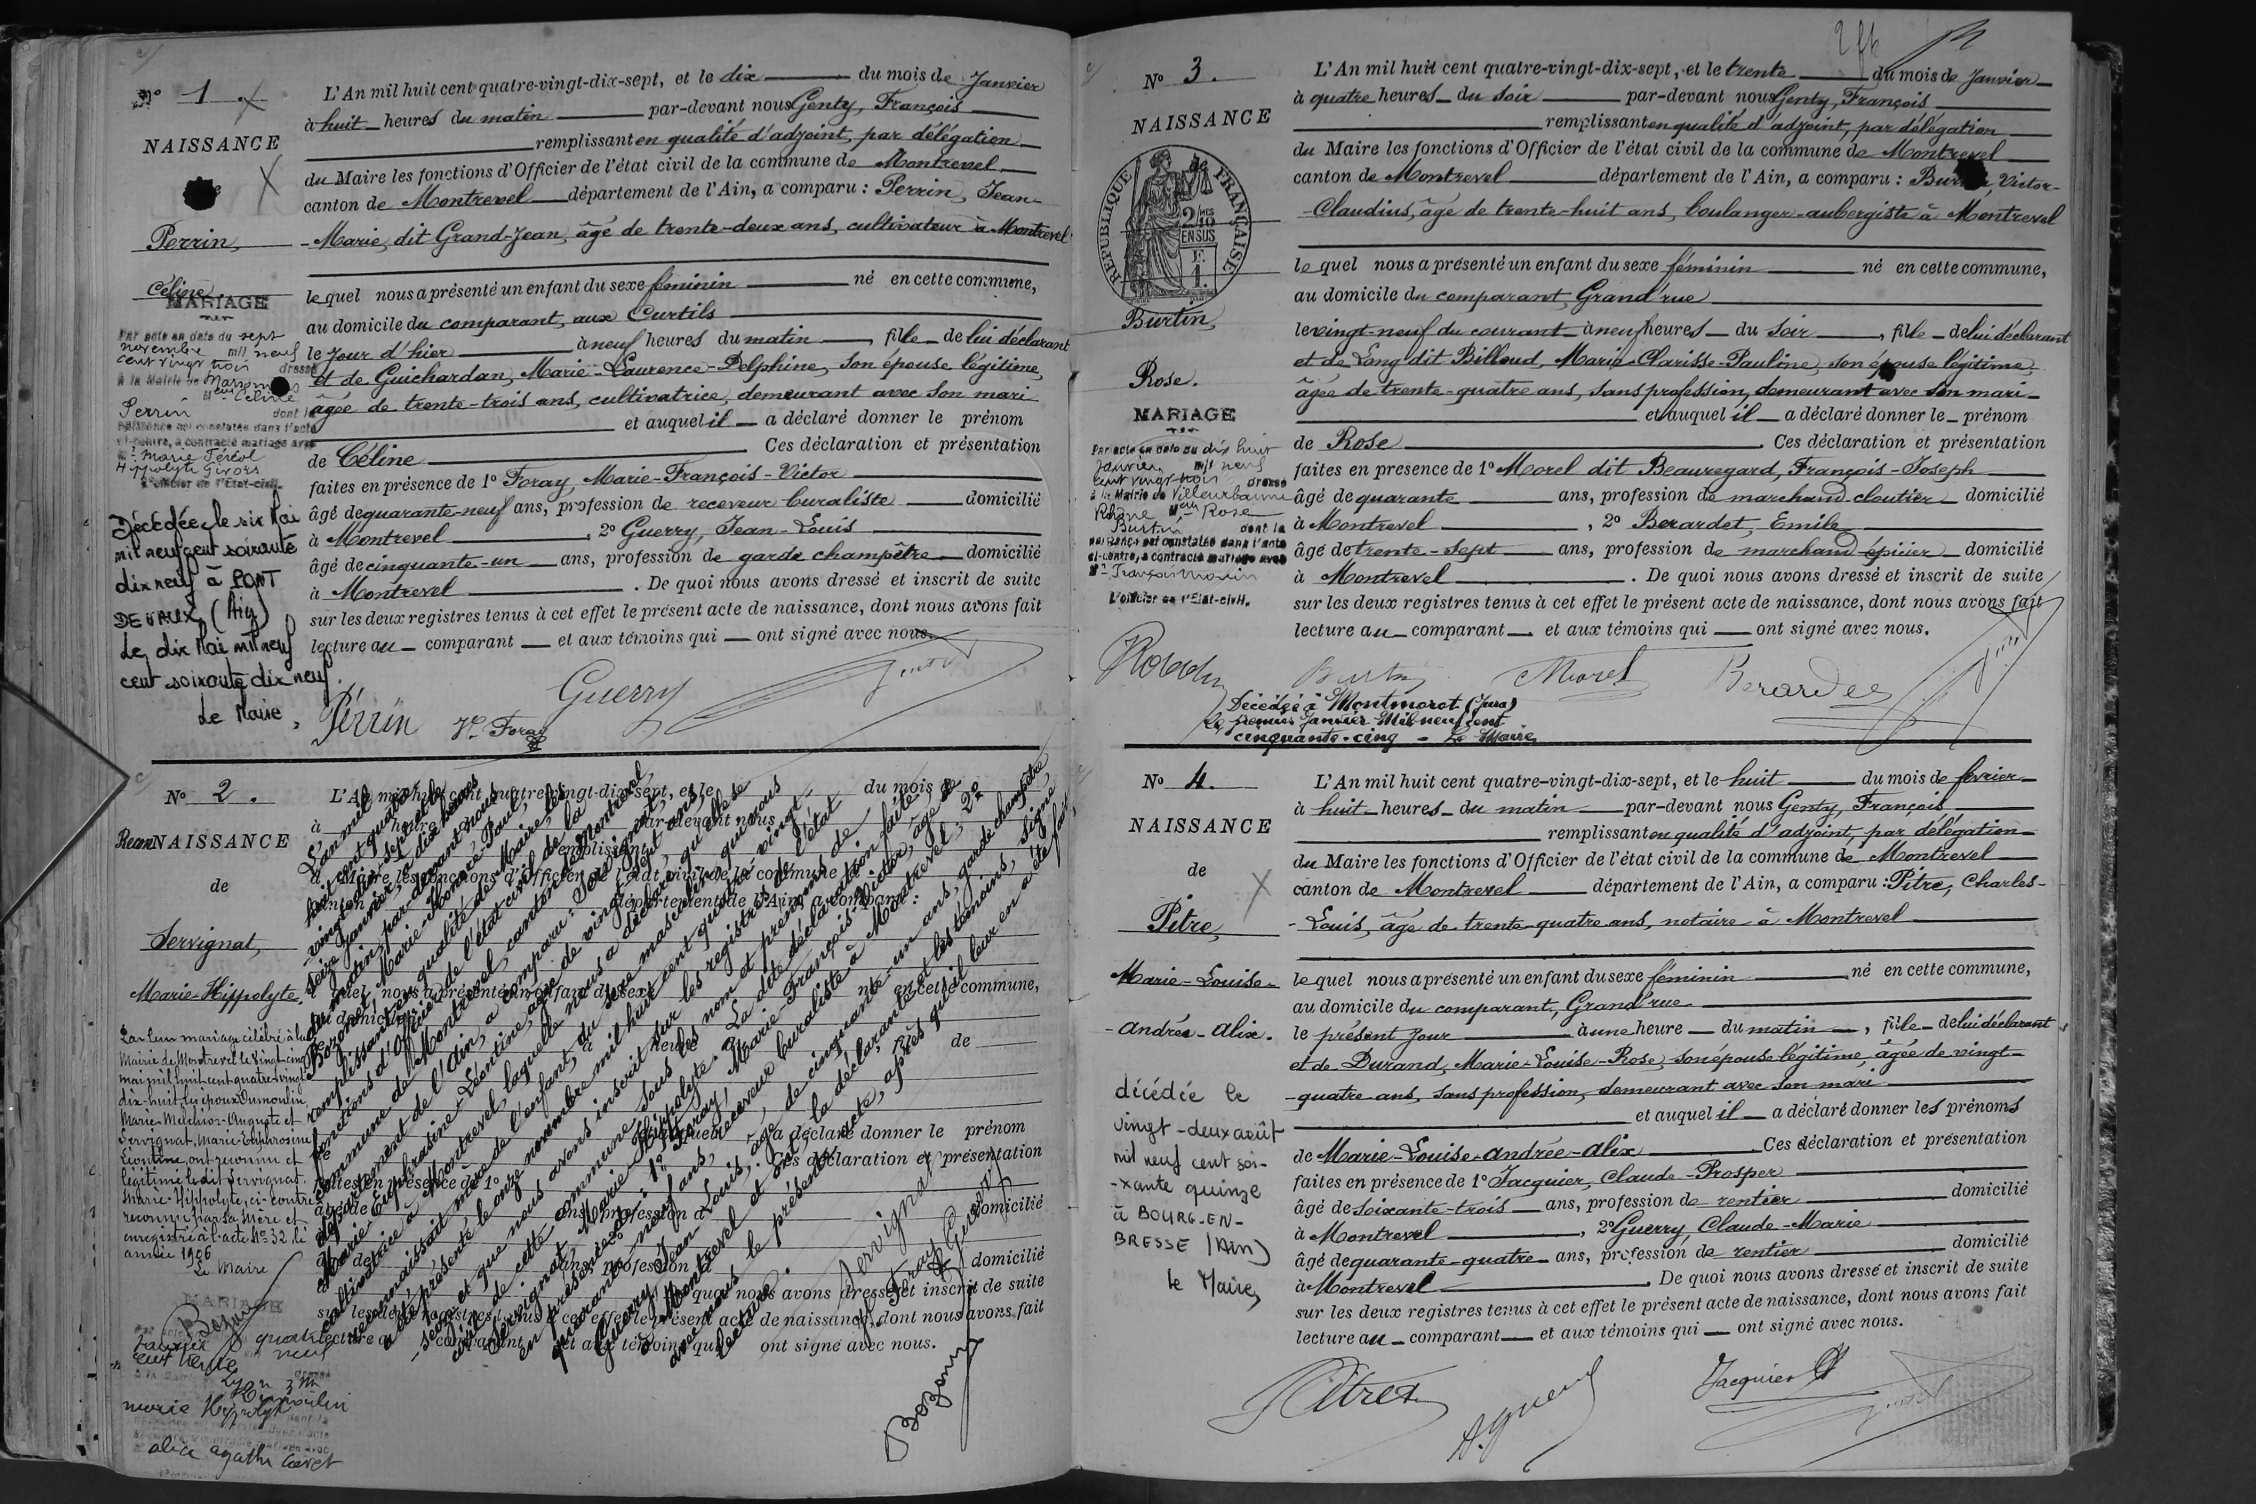 N° 1.
NAISSANCE
Perrin,
Céline
MARIAGE
Par acte en date du sept
novembre mil neuf
cent vingt trois dressé
à la Mairie de
Melle Céline
Perrin dont la
naissance est constatée dans l'acte
ci-contre, a contracté mariage avec
Mr Marie Féréol
Hippolyte Givors
L'officier de l'Etat-civil.
Décédée le six Mai
mil neuf cent soixante
dix neuf à PONT
DE VAUX, (Ain)
Le dix Mai mil neuf
cent soixante dix neuf.
Le Maire,
L'An mil huit cent quatre-vingt-dix-sept, et le dix du mois de Janvier
à huit heures du matin par-devant nous Genty, François
remplissant en qualité d'adjoint, par délégation
du Maire les fonctions d'Officier de l'état civil de la commune de Montrevel
canton de Montrevel département de l'Ain, a comparu : Perrin, Jean-
-Marie, dit Grand-Jean, âgé de trente-deux ans, cultivateur à Montrevel
le quel nous a présenté un enfant du sexe féminin né en cette commune,
au domicile du comparant, aux Curtils
le jour d'hier à neuf heures du matin, fille de lui déclarant
et de Guichardan, Marie-Laurence-Delphine, son épouse légitime,
âgée de trente-trois ans, cultivatrice, demeurant avec son mari
et auquel il a déclaré donner le prénom
de Céline Ces déclaration et présentation
faites en présence de 1° Foray, Marie-François-Victor
âgé de quarante-neuf ans, profession de receveur buraliste domicilié
à Montrevel, 2° Guerry, Jean-Louis
âgé de cinquante-un ans, profession de garde champêtre domicilié
à Montrevel. De quoi nous avons dressé et inscrit de suite
sur les deux registres tenus à cet effet le présent acte de naissance, dont nous avons fait
lecture au comparant et aux témoins qui ont signé avec nous.
Perrin Vr Foray Guerry
N° 2.
NAISSANCE
de
Servignat,
Marie-Hippolyte,
Par leur mariage célébré à la
Mairie de Montrevel le vingt-cinq
mai mil huit cent quatre-vingt-
dix-huit, les époux Dumoulin,
Marie-Melchior-Auguste et
Servignat, Marie-Euphrosine
Léontine, ont reconnu et
légitimé le dit Servignat,
Marie-Hippolyte, ci-contre
reconnu par sa mère et
enregistré à l'acte N° 32, de
année 1906
Le Maire
MARIAGE
marie Hippolyte Dumoulin
alice agathe
L'an mil
huit cent quatre-
vingt-dix-sept et le
seize janvier, à dix heures
du matin, par-devant nous
Bozonnet, Marie-Honoré-Paul,
remplissant en qualité de Maire, les
fonctions d'Officier de l'état civil de la
commune de Montrevel, canton de Montrevel,
département de l'Ain, a comparu : Servignat,
Marie Euphrasine-Léontine, âgée de vingt-sept ans,
cultivatrice à Montrevel, laquelle nous a déclaré qu'elle se
reconnaissait mère de l'enfant, du sexe masculin, qui nous
a été présenté le onze novembre mil huit cent quatre-vingt-
-seize et que nous avons inscrit sur les registres de l'état
civil de cette commune sous les nom et prénoms de
Servignat, Marie-Hippolyte. La dite déclaration faite
en présence de : 1° Foray, Marie François-Victor, âgé de
quarante-neuf ans, receveur buraliste à Montrevel ; 2°
Guerry, Jean-Louis, âgé de cinquante-un ans, garde champêtre
à Montrevel et ont, la déclarante et les témoins, signé
avec nous le présent acte, après qu'il leur en a été fait
lecture.
Servignat
Vr Foray Guerry
Bozonnet
L'An mil huit cent quatre-vingt-dix-sept, et le du mois
à heure par-devant nous
remplissant
du Maire les fonctions d'Officier de l'état civil de la commune
canton département de l'Ain, a comparu :
le quel nous a présenté un enfant du sexe né en cette commune,
au domicile
à heure fil de
et auquel a déclaré donner le prénom
Ces déclaration et présentation
faites en présence de 1°
âgé de ans, profession d domicilié
âgé de ans, profession d domicilié
De quoi nous avons dressé et inscrit de suite
sur les deux registres tenus à cet effet le présent acte de naissance, dont nous avons fait
lecture a comparant et aux témoins qui ont signé avec nous.
N° 3.
NAISSANCE
de
REPUBLIQUE FRANÇAISE
2/10
EN SUS
Burtin,
Rose.
MARIAGE
Par acte en date du dix huit
Janvier mil neuf
cent vingt trois dressé
à la Mairie de Villeurbanne
Rhône Melle Rose
Burtin dont la
naissance est constatée dans l'acte
ci-contre, a contracté mariage avec
Mr François
L'officier de l'Etat-civil.
L'An mil huit cent quatre-vingt-dix-sept, et le trente du mois de Janvier
à quatre heures du soir par-devant nous Genty, François
remplissant en qualité d'adjoint, par délégation
du Maire les fonctions d'Officier de l'état civil de la commune de Montrevel
canton de Montrevel département de l'Ain, a comparu : Burtin, Victor-
-Claudius, âgé de trente-huit ans, boulanger-aubergiste à Montrevel
le quel nous a présenté un enfant du sexe féminin né en cette commune,
au domicile du comparant, Grand'rue
le vingt-neuf du courant à neuf heures du soir, fille de lui déclarant
et de Lang dit Billoud, Marie-Clarisse-Pauline, son épouse légitime,
âgée de trente-quatre ans, sans profession, demeurant avec son mari
et auquel il a déclaré donner le prénom
de Rose Ces déclaration et présentation
faites en presence de 1° Morel dit Beauregard, François-Joseph
âgé de quarante ans, profession de marchand cloutier domicilié
à Montrevel, 2° Berardet, Emile
âgé de trente-sept ans, profession de marchand épicier domicilié
à Montrevel. De quoi nous avons dressé et inscrit de suite
sur les deux registres tenus à cet effet le présent acte de naissance, dont nous avons fait
lecture au comparant et aux témoins qui ont signé avec nous.
Burtin Morel Berardet
Décédée à Montmorot (Jura)
Le premier Janvier Mil neuf cent
cinquante-cinq - Le Maire
N° 4.
NAISSANCE
de
Pitre,
Marie-Louise-
-andrée-alix.
décédée le
vingt-deux août
mil neuf cent soi-
-xante quinze
à BOURG-EN-
BRESSE (Ain)
Le Maire,
L'An mil huit cent quatre-vingt-dix-sept, et le huit du mois de février
à huit heures du matin par-devant nous Genty, François
remplissant en qualité d'adjoint, par délégation
du Maire les fonctions d'Officier de l'état civil de la commune de Montrevel
canton de Montrevel département de l'Ain, a comparu : Pitre, Charles-
-Louis, âgé de trente-quatre ans, notaire à Montrevel
le quel nous a présenté un enfant du sexe féminin né en cette commune,
au domicile du comparant, Grand'rue
le présent jour à une heure du matin, fille de lui déclarant
et de Durand, Marie-Louise-Rose, son épouse légitime, âgée de vingt-
-quatre ans, sans profession, demeurant avec son mari
et auquel il a déclaré donner les prénoms
de Marie-Louise-andrée-alix Ces déclaration et présentation
faites en présence de 1° Jacquier, Claude-Prosper
âgé de soixante-trois ans, profession de rentier domicilié
à Montrevel, 2° Guerry, Claude-Marie
âgé de quarante-quatre ans, profession de rentier domicilié
à Montrevel. De quoi nous avons dressé et inscrit de suite
sur les deux registres tenus à cet effet le présent acte de naissance, dont nous avons fait
lecture au comparant et aux témoins qui ont signé avec nous.
Pitre Guerry Jacquier